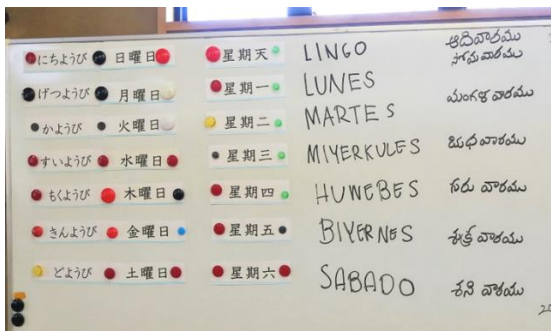 にちようび 日曜日 星期天 LINGO ఆదివారము
げつようび 月曜日 星期一 LUNES సోమవారము
かようび 火曜日 星期二 MARTES మంగళ వారము
すいようび 水曜日 星期三 MIYERKULES బుధ వారము
もくようび 木曜日 星期四 HUWEBES గురు వారము
きんようび 金曜日 星期五 BIYERNES శుక్ర వారము
どようび 土曜日 星期六 SABADO శని వారము